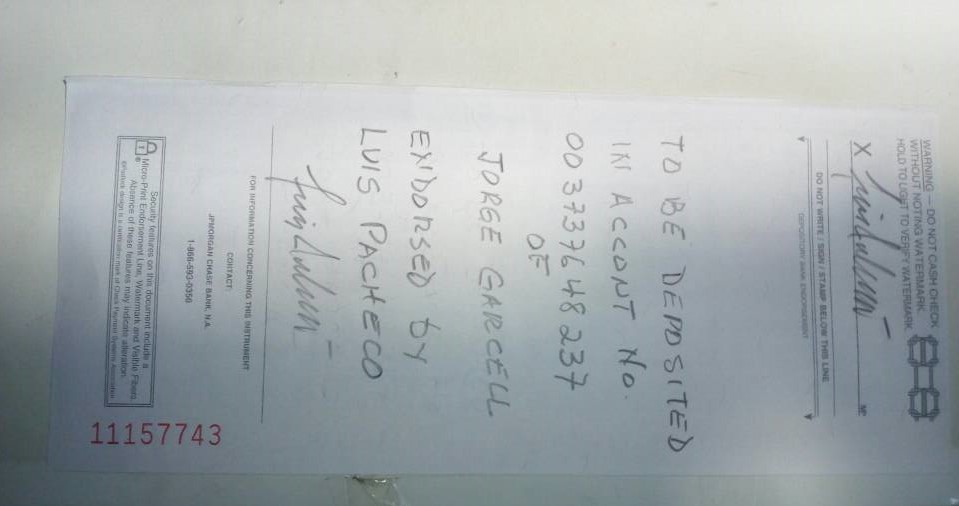 WARNING — DO NOT CASH CHECK
WITHOUT NOTING WATERMARK.
HOLD TO LIGHT TO VERIFY WATERMARK.
X
MP
DO NOT WRITE / SIGN / STAMP BELOW THIS LINE
DEPOSITORY BANK ENDORSEMENT
TO BE DEPOSITED
IN ACCONT No.
00373764 8237
OF
JORGE GARCELL
ENDORSED by
LUIS PACHECO
FOR INFORMATION CONCERNING THIS INSTRUMENT
CONTACT:
JPMORGAN CHASE BANK, N.A.
1-866-593-0350
Security features on this document include a
Micro-Print Endorsement Line, Watermark and Visible Fibers.
Absence of these features may indicate alteration.
design is a certification mark of Check Payment Systems Association
11157743